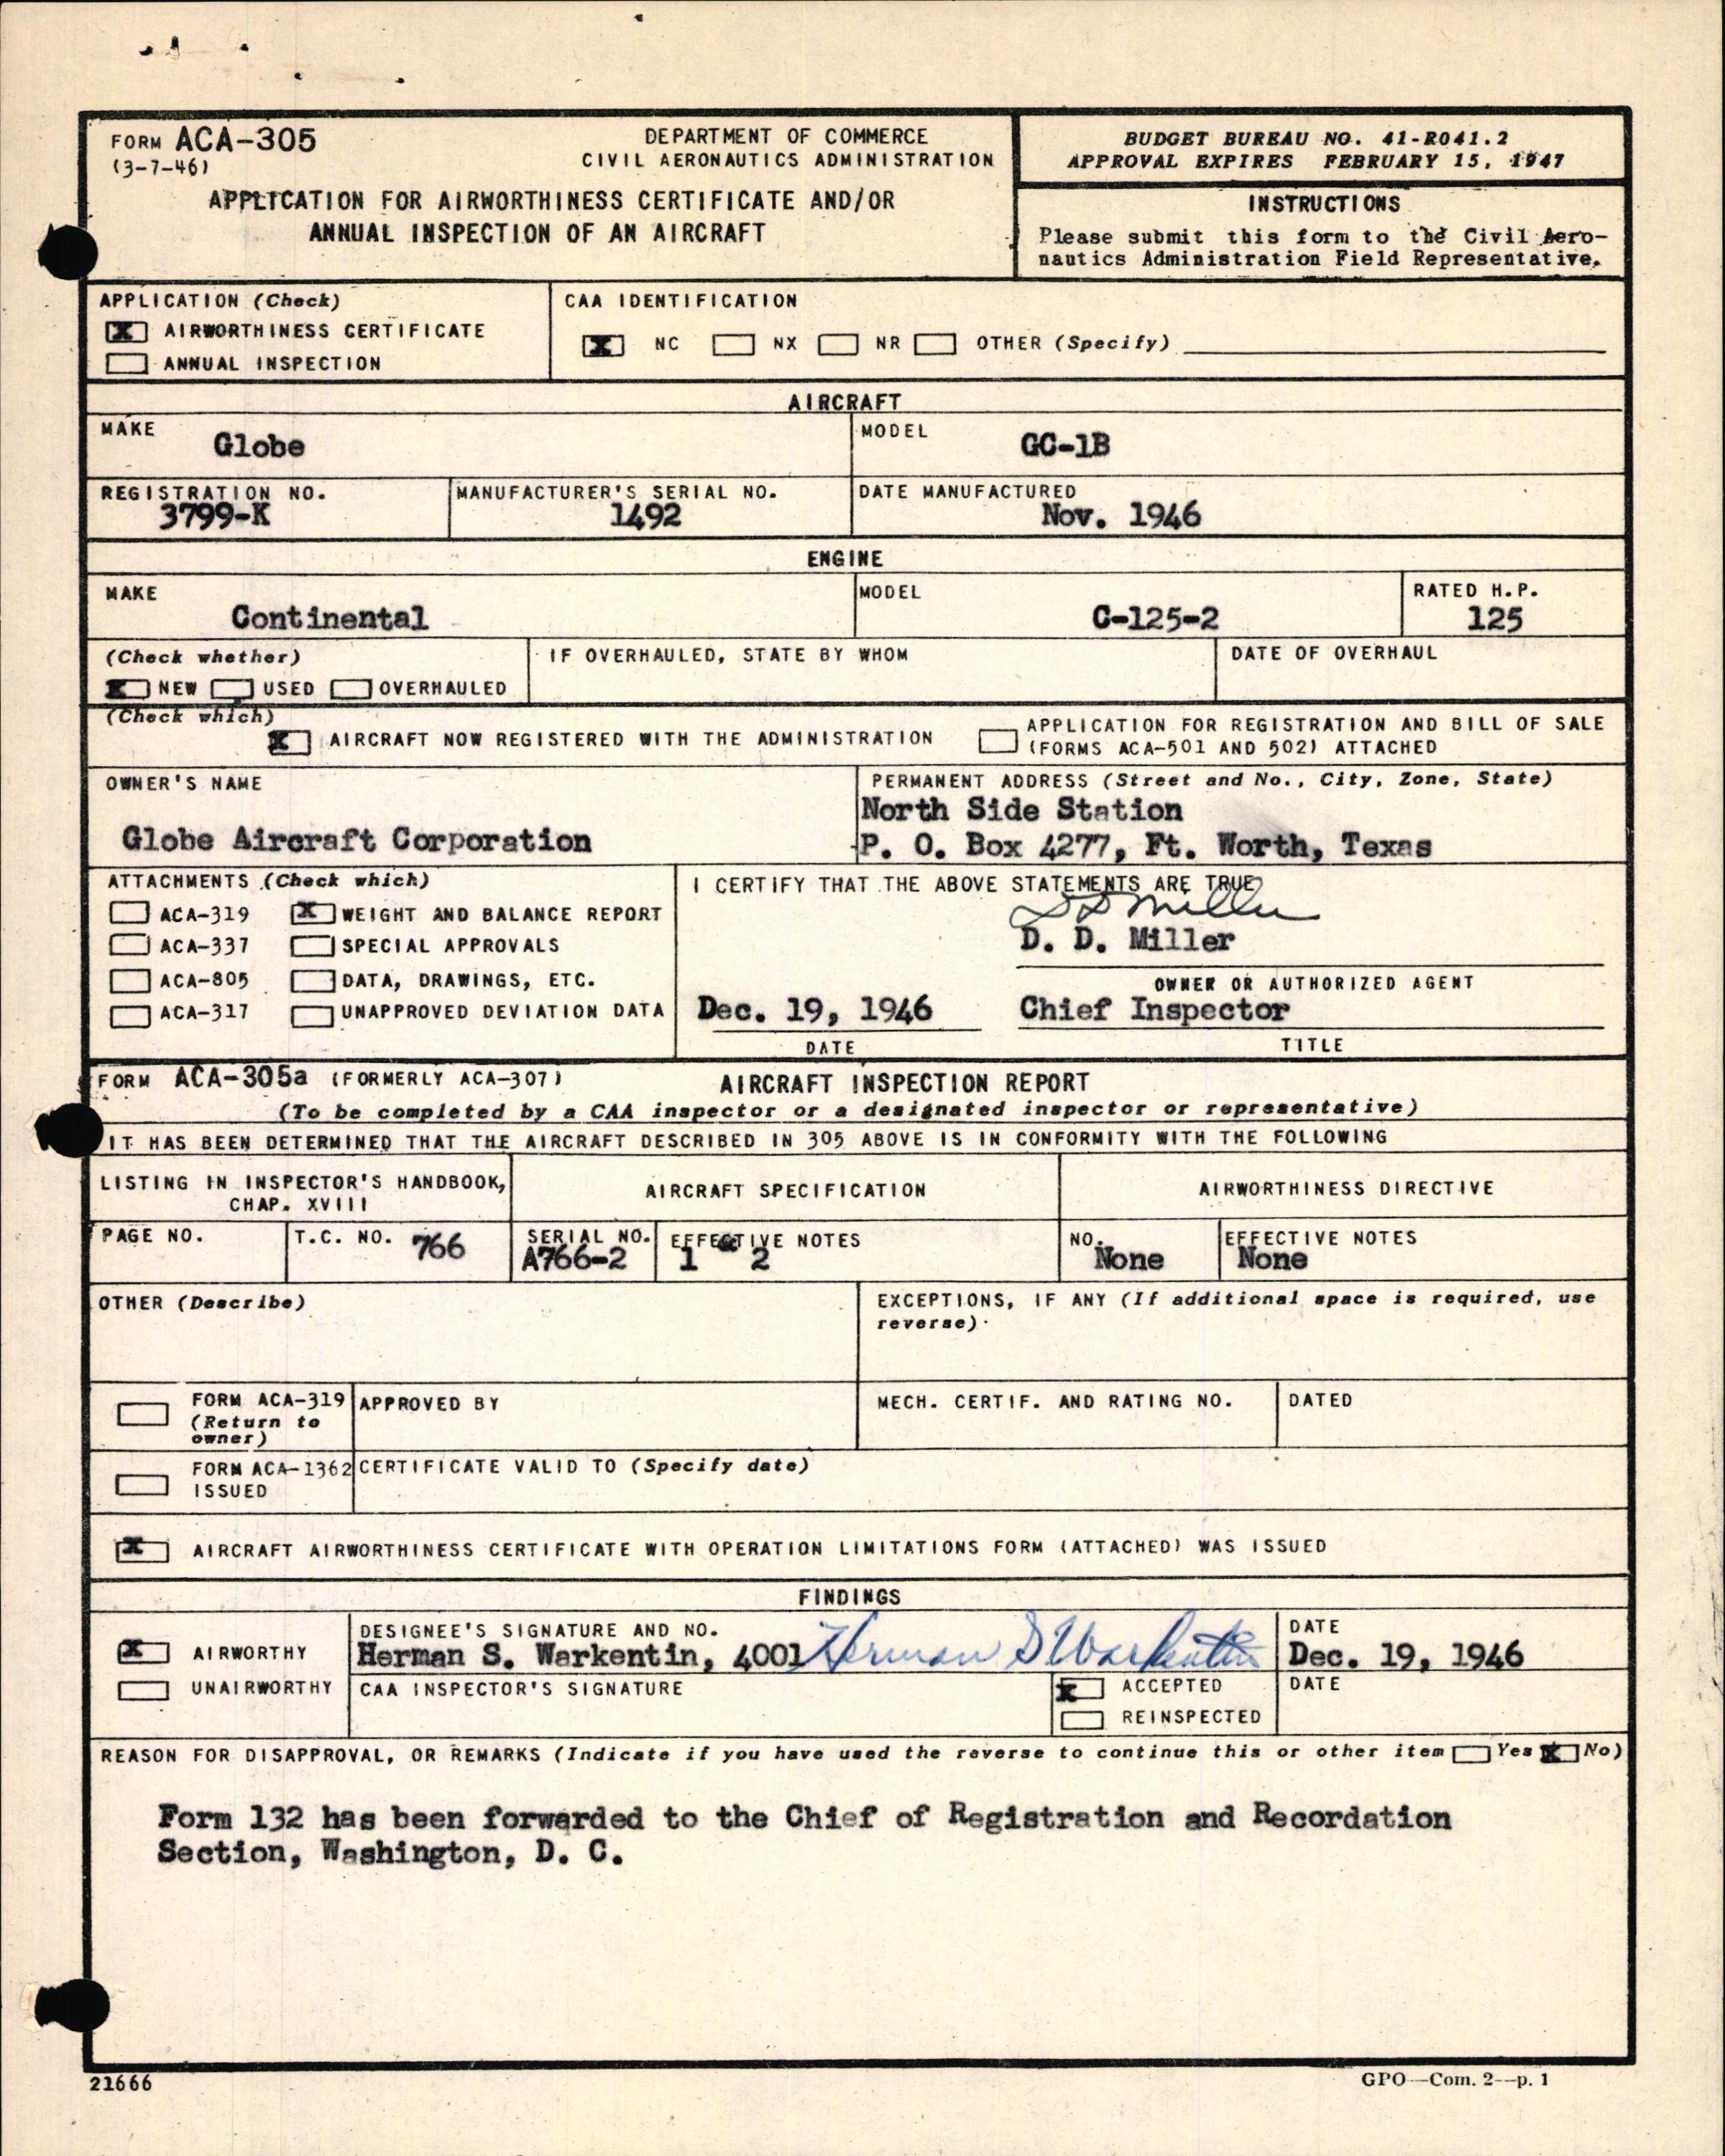 FORM ACA-305
(3-7-46)
DEPARTMENT OF COMMERCE
CIVIL AERONAUTICS ADMINISTRATION
APPLICATION FOR AIRWORTHINESS CERTIFICATE AND/OR
ANNUAL INSPECTION OF AN AIRCRAFT
BUDGET BUREAU NO. 41-R041.2
APPROVAL EXPIRES FEBRUARY 15, 1947
INSTRUCTIONS
Please submit this form to the Civil Aero-
nautics Administration Field Representative.
APPLICATION (Check)
X AIRWORTHINESS CERTIFICATE
ANNUAL INSPECTION
CAA IDENTIFICATION
X NC NX NR OTHER (Specify)
AIRCRAFT
MAKE
Globe
MODEL
GC-1B
REGISTRATION NO.
3799-K
MANUFACTURER'S SERIAL NO.
1492
DATE MANUFACTURED
Nov. 1946
ENGINE
MAKE
Continental
MODEL
C-125-2
RATED H.P.
125
(Check whether)
X NEW USED OVERHAULED
IF OVERHAULED, STATE BY WHOM
DATE OF OVERHAUL
(Check which)
X AIRCRAFT NOW REGISTERED WITH THE ADMINISTRATION
APPLICATION FOR REGISTRATION AND BILL OF SALE
(FORMS ACA-501 AND 502) ATTACHED
OWNER'S NAME
Globe Aircraft Corporation
PERMANENT ADDRESS (Street and No., City, Zone, State)
North Side Station
P. O. Box 4277, Ft. Worth, Texas
ATTACHMENTS (Check which)
ACA-319 X WEIGHT AND BALANCE REPORT
ACA-337 SPECIAL APPROVALS
ACA-805 DATA, DRAWINGS, ETC.
ACA-317 UNAPPROVED DEVIATION DATA
I CERTIFY THAT THE ABOVE STATEMENTS ARE TRUE
D D Miller
D. D. Miller
OWNER OR AUTHORIZED AGENT
Dec. 19, 1946 Chief Inspector
DATE TITLE
FORM ACA-305a (FORMERLY ACA-307) AIRCRAFT INSPECTION REPORT
(To be completed by a CAA inspector or a designated inspector or representative)
IT HAS BEEN DETERMINED THAT THE AIRCRAFT DESCRIBED IN 305 ABOVE IS IN CONFORMITY WITH THE FOLLOWING
LISTING IN INSPECTOR'S HANDBOOK,
CHAP. XVIII
AIRCRAFT SPECIFICATION
AIRWORTHINESS DIRECTIVE
PAGE NO.
T.C. NO. 766
SERIAL NO.
A766-2
EFFECTIVE NOTES
1 & 2
NO.
None
EFFECTIVE NOTES
None
OTHER (Describe)
EXCEPTIONS, IF ANY (If additional space is required, use
reverse)
FORM ACA-319
(Return to
owner)
APPROVED BY
MECH. CERTIF. AND RATING NO.
DATED
FORM ACA-1362
ISSUED
CERTIFICATE VALID TO (Specify date)
X AIRCRAFT AIRWORTHINESS CERTIFICATE WITH OPERATION LIMITATIONS FORM (ATTACHED) WAS ISSUED
FINDINGS
X AIRWORTHY
UNAIRWORTHY
DESIGNEE'S SIGNATURE AND NO.
Herman S. Warkentin, 4001 Herman S Warkentin
DATE
Dec. 19, 1946
CAA INSPECTOR'S SIGNATURE
X ACCEPTED
REINSPECTED
DATE
REASON FOR DISAPPROVAL, OR REMARKS (Indicate if you have used the reverse to continue this or other item Yes X No)
Form 132 has been forwarded to the Chief of Registration and Recordation
Section, Washington, D. C.
21666
GPO—Com. 2--p. 1